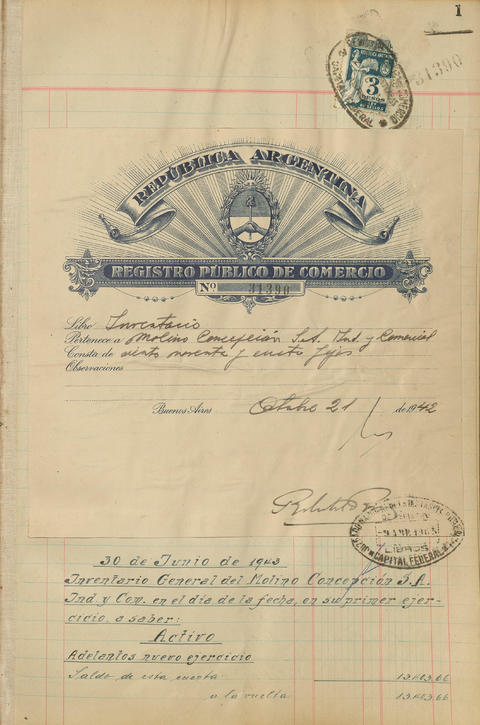 1
31390
3
PESOS
CAPITAL FEDERAL
REPÚBLICA ARGENTINA
REGISTRO PÚBLICO DE COMERCIO
Nº 31390
Libro Inventario
Pertenece a Molino Concepción S.A. Ind. y Comercial
Consta de ciento noventa y fojas
Observaciones
Buenos Aires Octubre 21 de 1942
LIBROS
CAPITAL FEDERAL
30 de Junio de 1943
Inventario General del Molino Concepción S.A.
Ind. y Com. en el día de la fecha, en su primer ejer-
cicio, a saber:
Activo
Adelantos nuevo ejercicio
Saldo de esta cuenta
a la vuelta